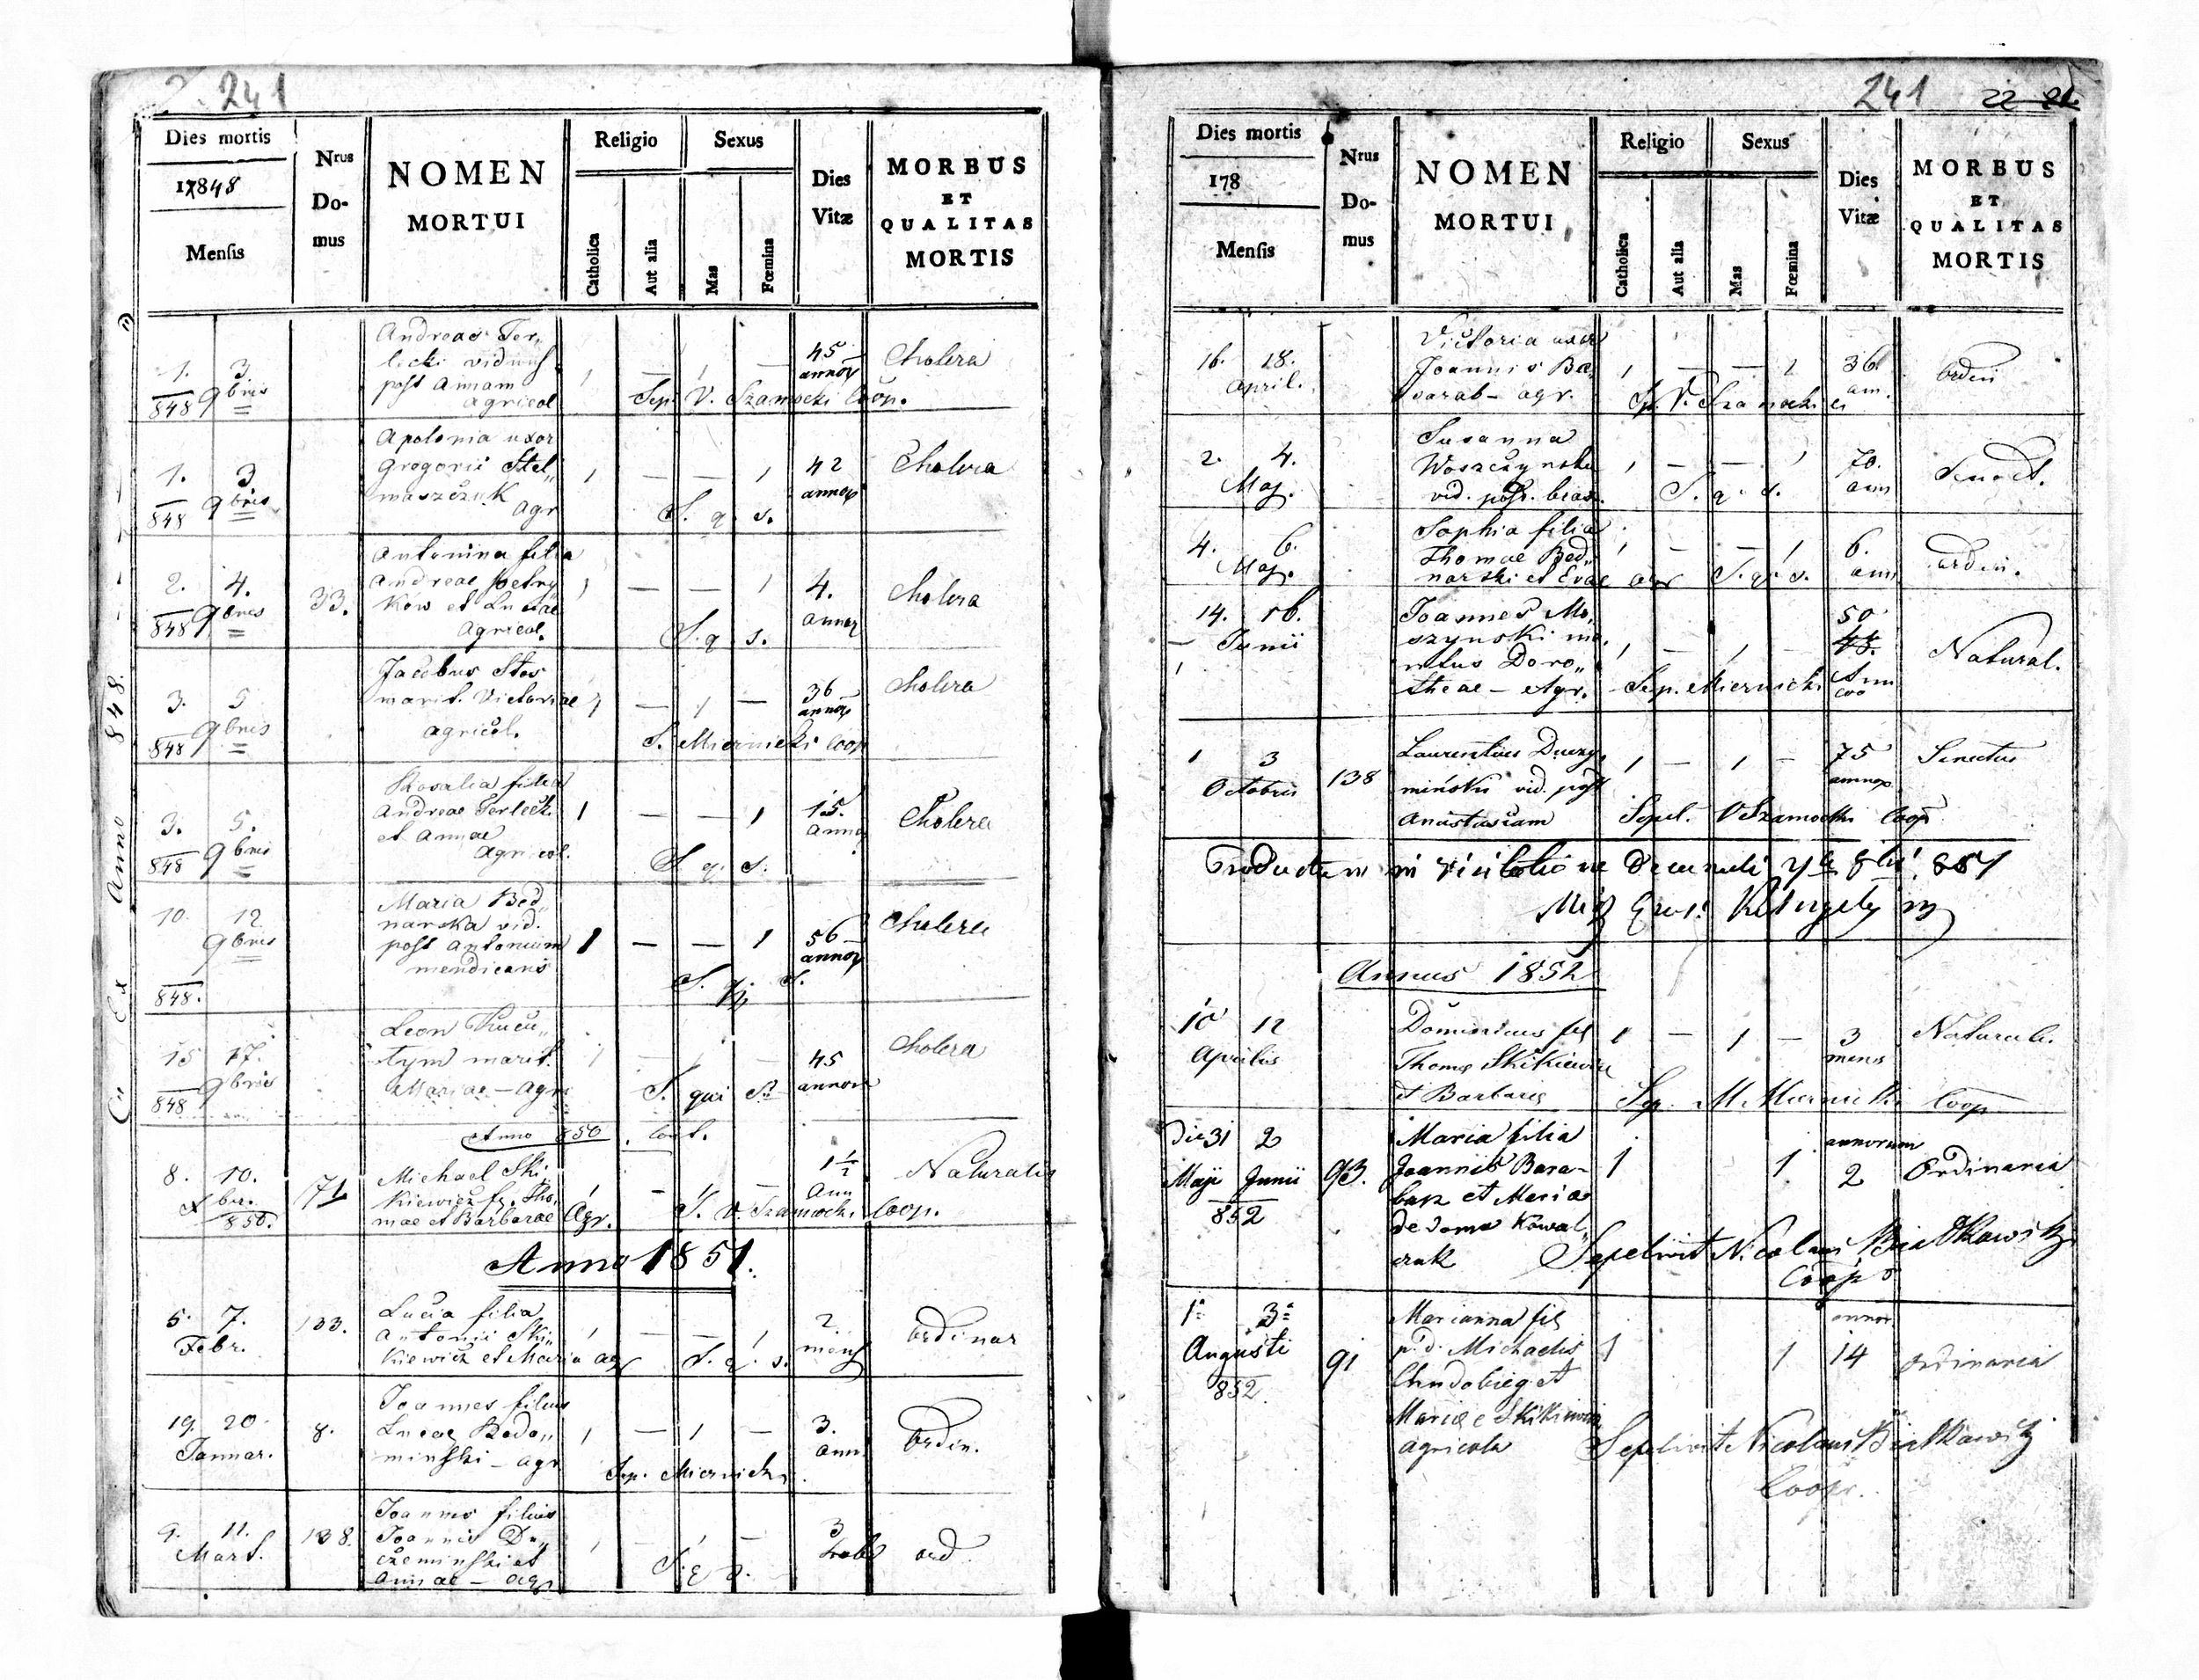 241
Dies mortis
17848
Mensis
Nrus
Domus
NOMEN
MORTUI
Religio
Catholica
Aut alia
Sexus
Mas
Fœmina
Dies
Vitæ
MORBUS
ET
QUALITAS
MORTIS
Ex Anno 848.
1. 3 9bris 848
Andreas Ter„
lecki viduus
post Annam
agricol
1 — 1 —
45 annor
Cholera
Sep. V. Szamocki Coop.
1. 3 9bris 848
Apolonia uxor
Gregorii Stel„
maszczuk
agr
1 — — 1
42 annor
Cholera
S. q. s.
2. 4. 9bres 848
33.
Antonina filia
Andreae Petry
ków et Luciae
Agricol.
1 — — 1
4. annor
Cholera
S. q. s.
3. 5 9bris 848
Jacobus Stos
marit. Victoriae
agricol.
1 — 1 —
36 annor
Cholera
S. Miernicki Coop
3. 5. 9bris 848
Rosalia filia
Andreae Terlecki
et Annae
agricol.
1 — — 1
15. anno
Cholera
S. q. s.
10. 12 9bris 848.
Maria Bed„
narska vid.
post Antonium
mendicans
1 — — 1
56 annor
Cholera
S. q. s.
15 17. 9bris 848
Leon Kucu„
tym marit.
Mariae — agr
1 — 1 —
45 annor
Cholera
S. qui s.
Anno 850. Cont.
8. 10. Xbr. 850.
71
Michael Ski„
kiewicz f. Tho„
mae et Barbarae Agr.
1 — 1
1 1/2 Ann
Naturalis
S. V. Szamocki Coop.
Anno 1851.
5. 7. Febr.
133.
Lucia filia
Antonii Ski„
kiewicz et Maria agr
1 — — 1
2. mens
Ordinar
S. q. s.
19. 20. Januar.
8.
Joannes filius
Lucae Bodo„
minski — agr
1 — 1 —
3. ann
Ordin.
Sep. Miernicki.
9. 11. Mart.
138.
Joannes filius
Joannis Du„
czeminski et
Annae — agr
1 — 1 —
3
ord.
S. q. s.
241 22
Dies mortis
178
Mensis
Nrus
Domus
NOMEN
MORTUI
Religio
Catholica
Aut alia
Sexus
Mas
Fœmina
Dies
Vitæ
MORBUS
ET
QUALITAS
MORTIS
16. 18. April.
Victoria uxor
Joannis Ba„
sarab — agr.
1 — — 1
36. an.
Ordin
Sp. V. Szamocki
2. 4. Maj.
Susanna
Woszczynska
vid. post.
1 — — 1
70. ann
Senect.
S. q. s.
4. 6. Maj.
Sophia filia
Thomae Bed„
narski et Evae agr
1 — — 1
6. ann
ordin.
S. q. s.
14. 16. Junii
Joannes Mo„
szynski ma„
ritus Doro„
theae — Agr.
1 — 1 —
50 Ann
Natural.
Sep. Miernicki Coo
1 3 Octobris
138
Laurentius Duczy„
miński vid. post
Anastasiam
1 — 1 —
75 annor
Senectus
Sepel. V Szamocki Coop
Productum in visitatione Decanali 857
Annus 1852
10 12 Aprilis
Dominicus fil
Thomæ Skikiewicz
et Barbaræ
1 — 1 —
3 mens
Natural.
Sep. M. Miernicki Coop
Die 31 2
Maji Junii 852
93.
Maria filia
Joannis Bara-
basz et Maria
de domo Kowal„
czuk
1 1
annorum 2
Ordinaria
Sepelivit Nicolaus Bialkowski
Coopr
1a 3a Augusti 852
91
Marianna fil
p.d. Michaelis
Chudobieg et
Mariæ Skikiewicz
agricola
1 1
annor. 14
Ordinaria
Sepelivit Nicolaus Bialkowski
Coopr.